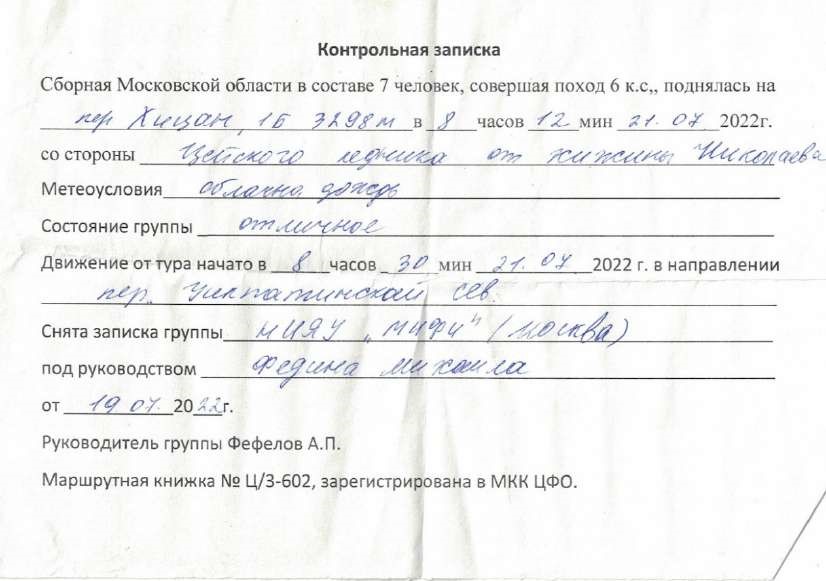 Контрольная записка
Сборная Московской области в составе 7 человек, совершая поход 6 к.с,, поднялась на
пер Хицан, 1Б 3298м в 8 часов 12 мин 21.07 2022г.
со стороны Цейского ледника от хижины Николаева
Метеоусловия облачно дождь
Состояние группы отличное
Движение от тура начато в 8 часов 30 мин 21.07 2022 г. в направлении
пер. Чикпатинский сев.
Снята записка группы НИЯУ „МИФИ" (Москва)
под руководством Федина Михаила
от 19 07. 2022г.
Руководитель группы Фефелов А.П.
Маршрутная книжка № Ц/3-602, зарегистрирована в МКК ЦФО.